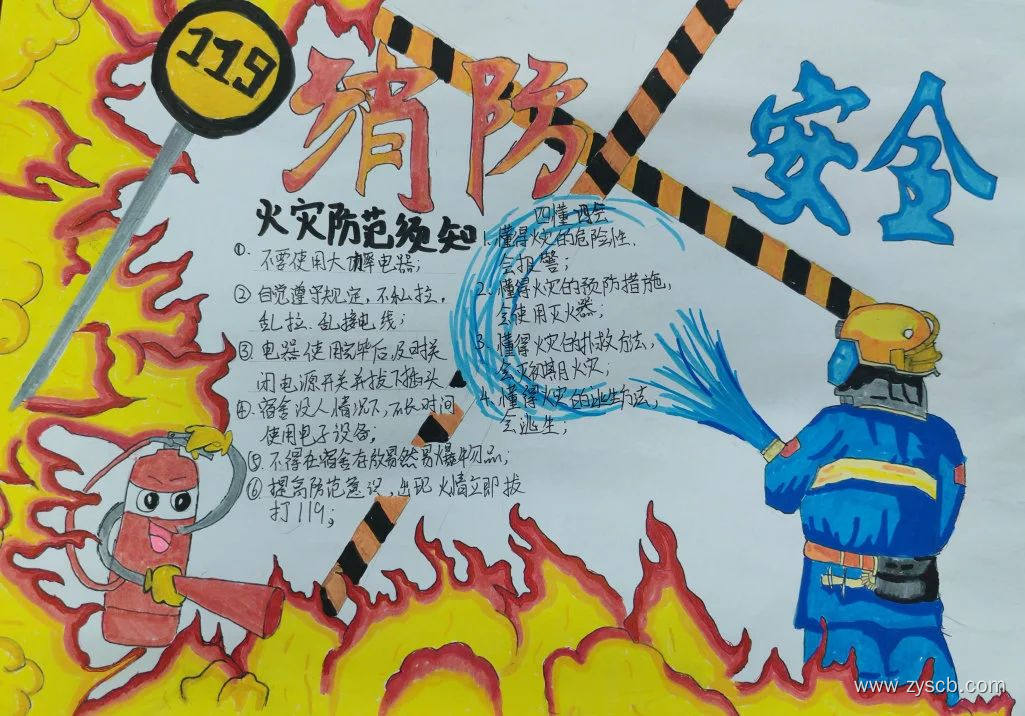 119
消防
安全
火灾防范须知
①. 不要使用大功率电器;
② 自觉遵守规定,不私拉,
乱拉、乱接电线;
③ 电器使用完毕后,及时关
闭电源开关并拔下插头.
④. 宿舍没人情况下,不长时间
使用电子设备;
⑤. 不得在宿舍存放易然易爆物品;
⑥ 提高防范意识,出现火情立即拔
打119;
四懂四会
1. 懂得火灾的危险性.
会报警;
2. 懂得火灾的预防措施,
会使用灭火器;
3. 懂得火灾的扑救方法,
会灭初期火灾;
4. 懂得火灾的逃生方法,
会逃生;
www.zyscb.com